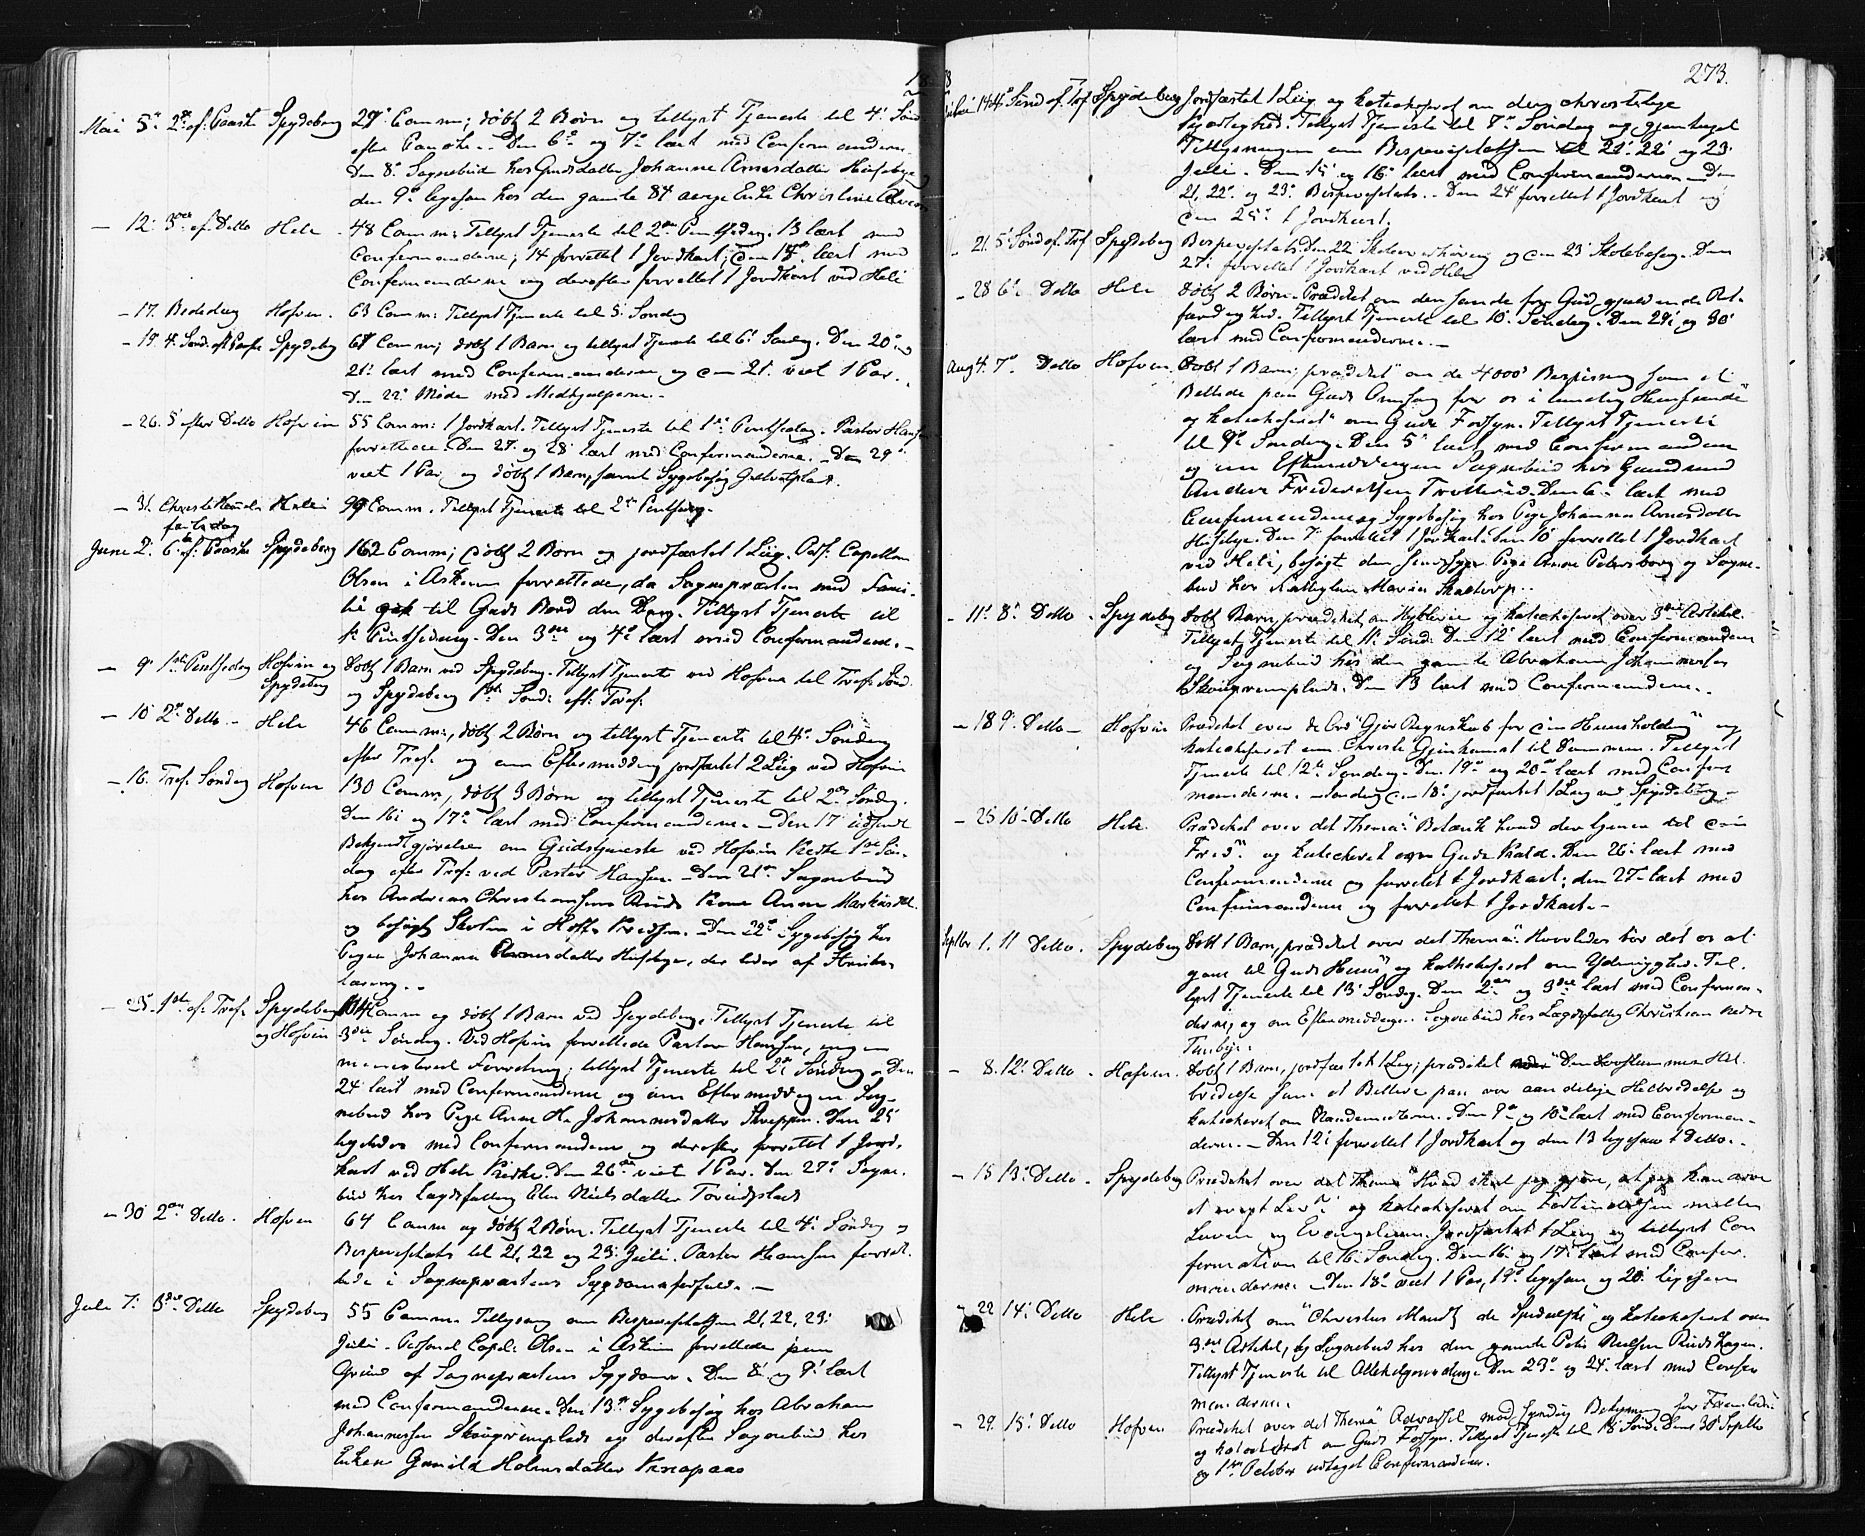 273.
Mai 5te 2den ef: Paaske Spydeberg 27 Comm; døbt 2 Børn og tillyst Tjeneste til 4de Sønd
efter Paaske. Den 6te og 7de læst med Confirmanderne.
Den 8de Sognebud hos Johanne Arnesdatter Huseby
den 9de ligesaa hos den gamle 84 aarige Enke Christine
— 12. 3die ef. Ditto Heli 48 Comm: Tillyst Tjeneste til 2den Pintsedag. 13 læst med
Confirmanderne; 14 forrettet 1 Jordkast; den 15de læst med
Confirmanderne og derefter forrettet 1 Jordkast ved Heli
— 17. Bededag Hofvin. 63 Comm: Tillyst Tjeneste til 5 Søndag
— 19. 4. Sønd. eft Paaske Spydeberg 67 Comm; døbt 1 Barn og tillyst Tjeneste til 6te Søndag. Den 20de og
21de læst med Confirmanderne og den 21. viet 1 Par.
Den 22de Møde med Medhjælperne.
— 26. 5 efter Ditto Hofvin 55 Comm: 1 Jordkast. Tillyst Tjeneste til 1ste Pintsedag. Pastor Hansen
forrettede. Den 27. og 28 læst med Confirmanderne. Den 29de
viet 1 Par og døbt 1 Barn, samt Sygebesøg
— 31. Christi Himmel- Heli 99 Comm. Tillyst Tjeneste til 2den Pintsedag.
fartsdag
Juni 2. 6te ef. Paaske Spydeberg 162 Comm; døbt 2 Børn og jordfæstet 1 Liig. Pers. Capellan
Olsen i Askim forrettede, da Sognepræsten med Fami-
lie gik til Guds Bord den Dag. Tillyst Tjeneste til
1ste Pintsedag. Den 3die og 4de læst med Confirmanderne.
— 9de 1ste Pintsedag Hofvin og Døbt 1 Barn ved Spydeberg. Tillyst Tjeneste ved Hofvin til Tref: Sønd
Spydeberg og Spydeberg 1ste Sønd: eft: Tref:
— 10 2den Ditto — Heli 46 Comm:, døbt 2 Børn og tillyst Tjeneste til 4de Søndag
efter Tref: og om Eftermiddag jordfæstet 2 Liig ved Hofvin
— 16. Tref. Søndag Hofvin 130 Comm, døbt 3 Børn og tillyst Tjeneste til 2den Søndag.
Den 16de og 17de læst med Confirmanderne. — Den 17 udsendt
Bekjendtgjørelse om Gudstjeneste ved Hofvin Kirke 1ste Søn-
dag efter Tref: ved Pastor Hansen. — Den 21de Sognebud
hos Andreas Christiansens Kone Anne Markusdtr
og besøgt Skolen i Kredsen. — Den 22de Sygebesøg hos
Pigen Johanne Arnesdatter Huseby, der lider af
— 23. 1ste ef. Tref. Spydeberg 114 Comm og døbt 1 Barn ved Spydeberg. Tillyst Tjeneste til
og Hofvin 3die Søndag. Ved Hofvin forrettede Pastor Hansen, ingen
ministeriel Forretning; tillyst Tjeneste til 2den Søndag. Den
24 læst med Confirmanderne og om Eftermiddagen Sog-
nebud hos Pige Anne H. Johannesdatter Den 25
ligeledes med Confirmanderne og derefter forrettet 1 Jord-
kast ved Heli Kirke. Den 26de viet 1 Par. Den 27de Sogne-
bud hos Lægdsfattig Elen Nielsdatter
— 30 2den Ditto. Hofvin 64 Comm og døbt 2 Børn. Tillyst Tjeneste til 4de Søndag og
Bispevisitats til 21, 22 og 23 Juli. Pastor Hansen forret-
tede i Sognepræstens Sygdomsforfald. —
Juli 7. 3die Ditto Spydeberg 55 Comm. Tillysning om Bispevisitatsen 21, 22, 23
Juli. Personel Capel: Olsen i Askim forrettede paa
Grund af Sognepræstens Sygdom. Den 8de og 9de læst
med Confirmanderne. Den 13de Sygebesøg hos Abraham
Johannessen og derefter Sognebud hos
Enken Gunild Holmsdatter Knapaas
Juli 14 4de Sønd ef. Tref Spydeberg Jordfæstet 1 Liig og katechiseret om den christelige
Kjærlighed. Tillyst Tjeneste til 7de Søndag og gjentaget
Tillysningen om Bispevisitatsen til 21. 22 og 23
Juli. Den 15 og 16de læst med Confirmanderne. Den
21, 22de og 23de Bispevisitats. Den 24 forrettet 1 Jordkast og
den 25de 1 Jordkast.
— 21. 5 Sønd ef. Tref Spydeberg Bispevisitats. Den 22 og den 23 Skolebesøg. Den
27. forrettet 1 Jordkast ved Heli
— 28 6te Ditto Heli Døbt 2 Børn. Prædiket om den sande for Gud gjældende Ret-
færdighed. Tillyst Tjeneste til 10. Søndag. Den 29de og 30
læst med Confirmanderne. —
Aug 4. 7de Ditto Hofvin Døbt 1 Barn; prædiket om de 4000s Bespisning som et
Billede paa Guds Omsorg for os i
og katechiseret om Guds Forsyn. Tillyst Tjeneste
til 9de Søndag. Den 5te læst med Confirmanderne
og om Eftermiddagen Sognebud hos
Anders Fredriksen Den 6te læst med
Confirmanderne og Sygebesøg hos Pige Johanne Arnesdatter
Huseby. Den 7de forrettet 1 Jordkast. Den 10 forrettet 1 Jordkast
ved Heli, besøgt den Pige Anne Petersborg og Sogne-
bud hos
— 11te 8de Ditto Spydeberg Døbt 1 Barn, prædiket om Hyklerie og katechiseret over 3die Artikel
Tillyst Tjeneste til 11te Sønd. Den 12te læst med Confirmanderne
og Sognebud hos den gamle Abraham Johannessen
Den 13 læst med Confirmanderne.
— 18 9de Ditto — Hofvin Prædiket over de Ord "Gjør Regnskab for din Huusholdning" og
katechiseret om Christi Gjenkomst til Dommen. Tillyst
Tjeneste til 12te Søndag. Den 19de og 20de læst med Confir-
manderne. — Søndag den 18de jordfæstet 1 Liig ved Spydeberg —
— 25 10de Ditto Heli. Prædiket over det Thema: "Betænk hvad der tjener til din
Fred" og katechiseret over Guds Kald. Den 26de læst med
Confirmanderne og forrettet 1 Jordkast; den 27de læst med
Confirmanderne og forrettet 1 Jordkast. —
Septbr 1. 11 Ditto. Spydeberg Døbt 1 Barn, prædiket over det Thema: "Hvorledes bør det os at
gaae til Guds Huus" og katechiseret om Ydmyghed. Til-
lyst Tjeneste til 13 Søndag. Den 2den og 3die læst med Confirman-
derne, og om Eftermiddagen Sognebud hos Lægdsfattig Christian nedre
— 8. 12te Ditto Hofvin. Døbt 1 Barn, jordfæstet 1 Liig; prædiket over Den Døvstummes Hel-
bredelse som et Billede paa vor aandelige Helbredelse og
katechiseret om Naademidlerne. Den 9de og 10de læst med Confirman-
derne. — Den 12te forrettet 1 Jordkast og den 13 ligesaa 1 Ditto.
— 15 13de Ditto. Spydeberg Prædiket over det Thema "Hvad skal jeg gjøre, at jeg kan arve
et evigt Liv" og katechiseret om Forbindelsen mellem
Loven og Evangelium. Jordfæstet 1 Liig og tillyst Con-
firmation til 16de Søndag. Den 16de og 17de læst med Confir-
manderne. Den 18de viet 1 Par, 19de ligesaa og 20de ligesaa
— 22 14de Ditto Heli Prædiket om "Christus Mandt de Spedalske" og katechiseret over
3die Artikel, og Sognebud hos den gamle Peder Nielsen
Tillyst Tjeneste til Allehelgensdag. Den 23de og 24de læst med Confir-
manderne.
— 29. 15de Ditto Hofvin Prædiket over det Thema "Advarsel mod syndig Bekymring for Fremtiden"
og katechiseret om Guds Forsyn. Tillyst Tjeneste til 18 Sønd. Den 30 Septbr
og 1ste October udtaget Confirmander.